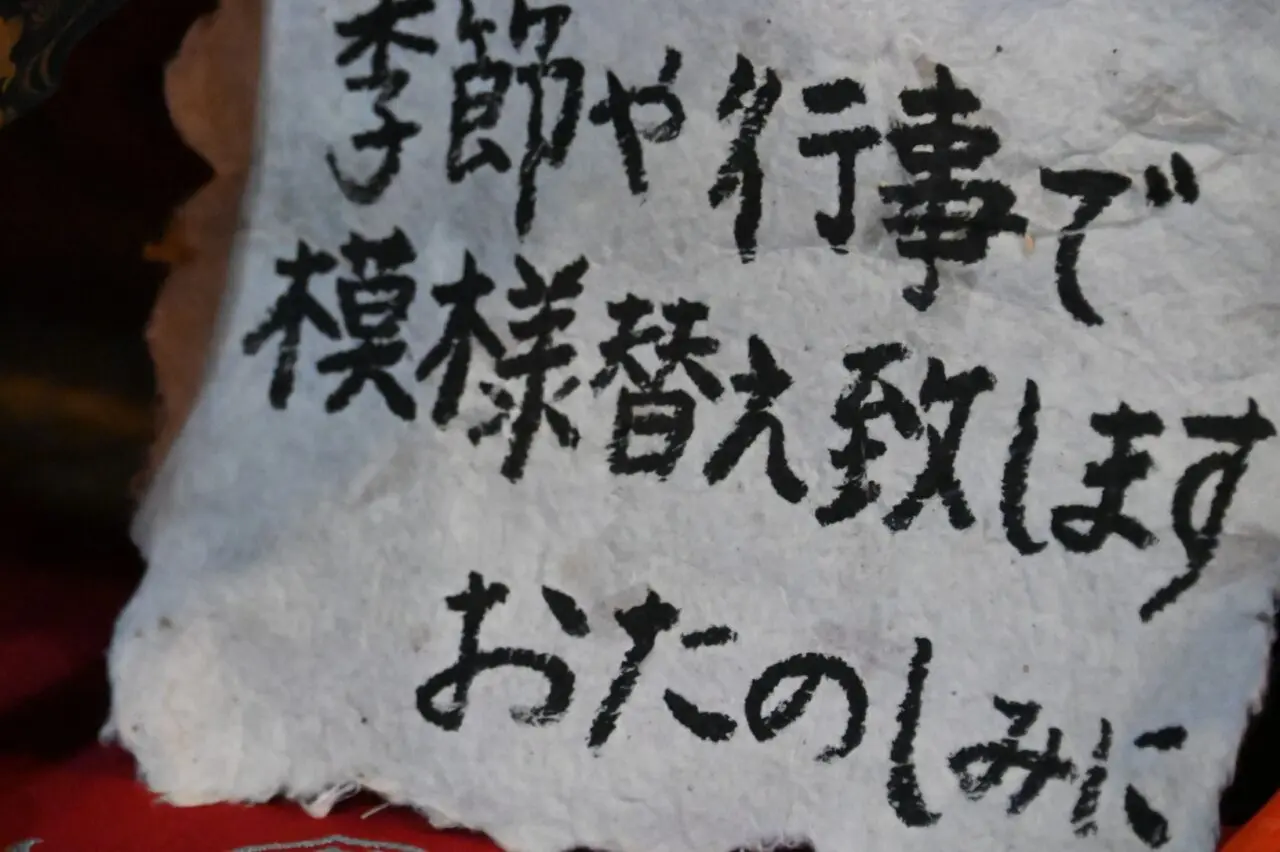 季節や行事で
模様替え致します
おたのしみに